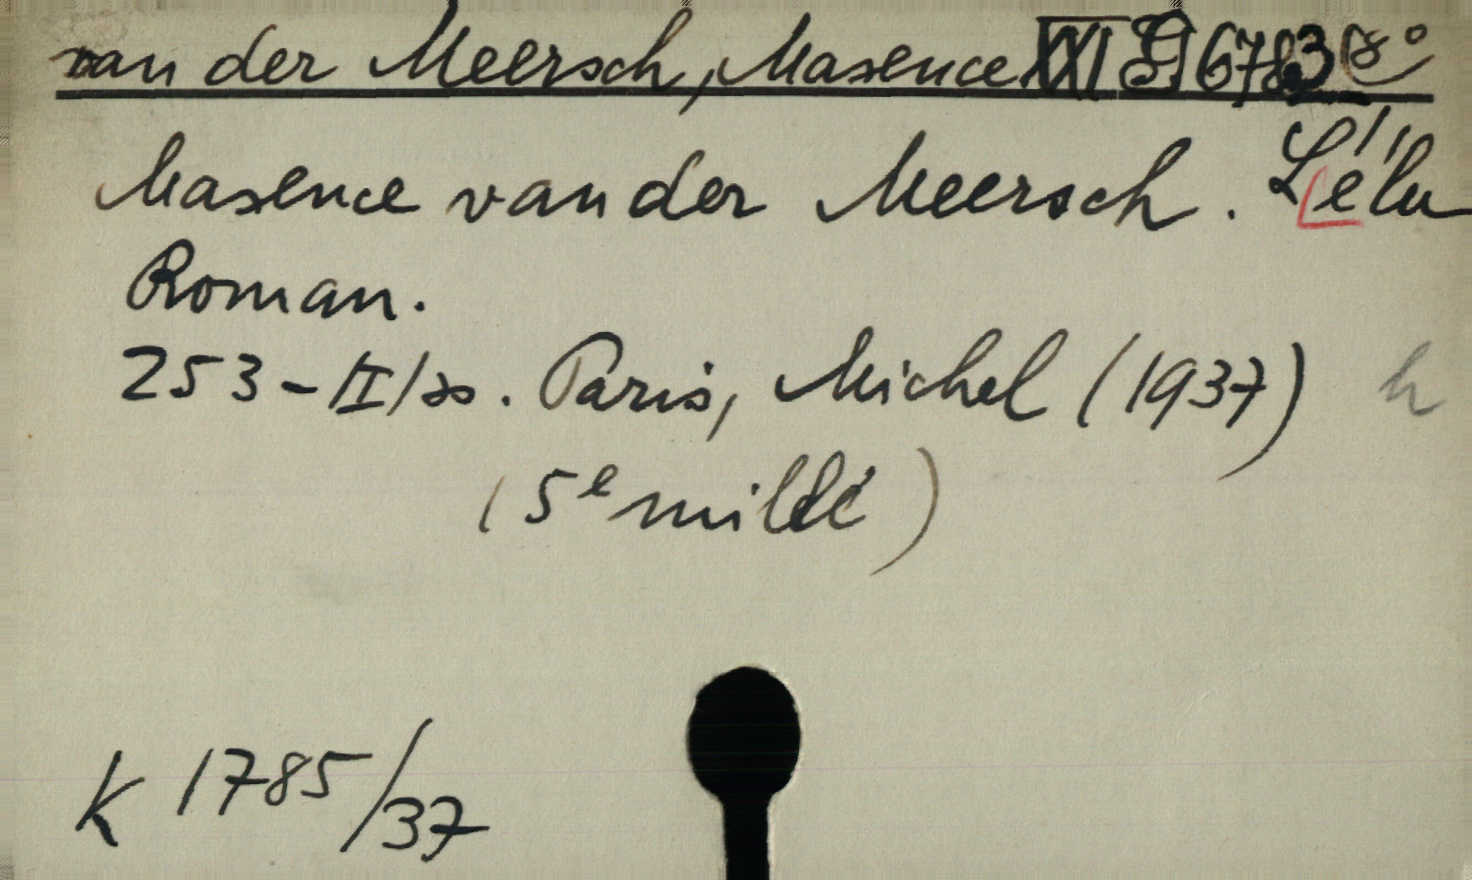 van der Meersch, Maxence XXI G 6783 8°
Maxence van der Meersch. L'élu
Roman.
253-II/ss. Paris, Michel (1937) h
(5e mille)
K 1785/37